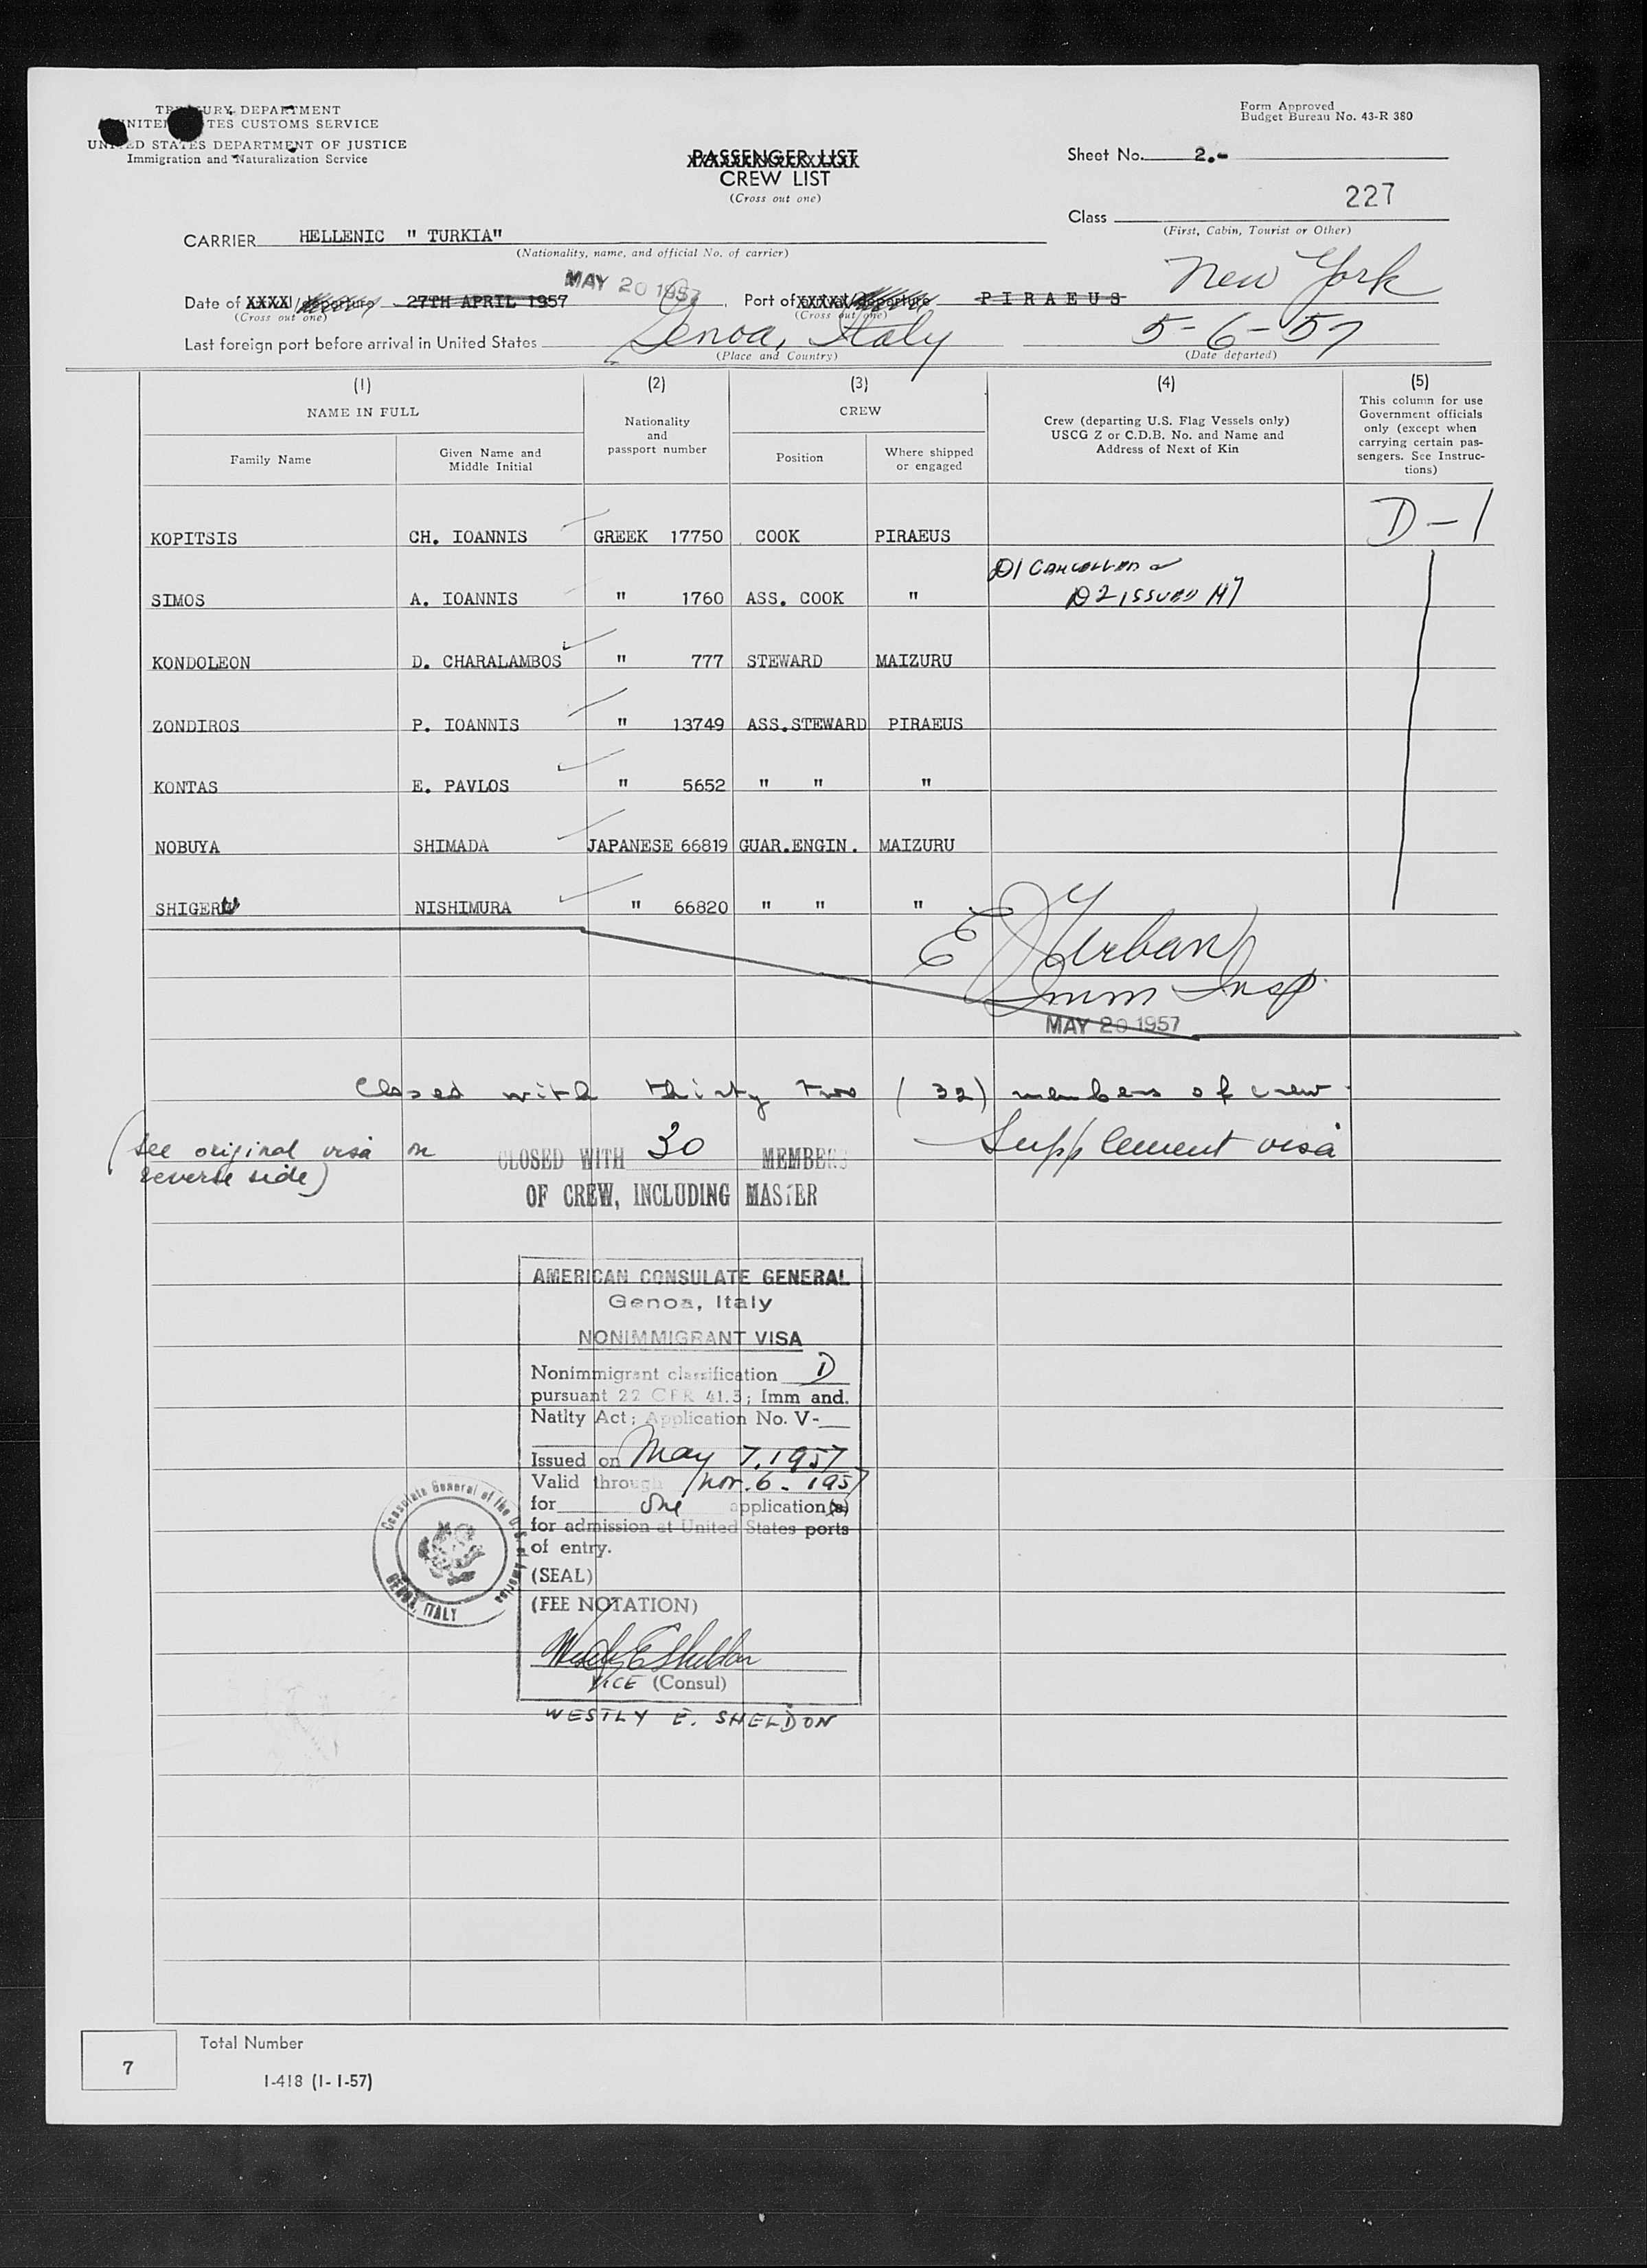 TREASURY DEPARTMENT
UNITED STATES CUSTOMS SERVICE
UNITED STATES DEPARTMENT OF JUSTICE
Immigration and Naturalization Service
Form Approved
Budget Bureau No. 43-R 380
PASSENGER LIST
CREW LIST
(Cross out one)
Sheet No. 2.-
227
Class
(First, Cabin, Tourist or Other)
CARRIER HELLENIC " TURKIA"
(Nationality, name, and official No. of carrier)
MAY 20 1957
New York
Date of XXXX/departure 27TH APRIL 1957 Port of XXXXX/departure PIRAEUS
(Cross out one) (Cross out one)
Last foreign port before arrival in United States Genoa, Italy 5-6-57
(Place and Country) (Date departed)
(1) (2) (3) (4) (5)
NAME IN FULL
Nationality and passport number
CREW
Crew (departing U.S. Flag Vessels only)
USCG Z or C.D.B. No. and Name and
Address of Next of Kin
This column for use
Government officials
only (except when
carrying certain pas-
sengers. See Instruc-
tions)
Family Name Given Name and Middle Initial Position Where shipped or engaged
D-1
KOPITSIS CH. IOANNIS GREEK 17750 COOK PIRAEUS
D1 CANCELLED
SIMOS A. IOANNIS " 1760 ASS. COOK " D2 ISSUED
KONDOLEON D. CHARALAMBOS " 777 STEWARD MAIZURU
ZONDIROS P. IOANNIS " 13749 ASS.STEWARD PIRAEUS
KONTAS E. PAVLOS " 5652 " " "
NOBUYA SHIMADA JAPANESE 66819 GUAR.ENGIN. MAIZURU
SHIGERU NISHIMURA " 66820 " " "
E J Urban
Imm Insp.
MAY 20 1957
Closed with thirty two (32) members of crew.
(see original visa on
reverse side)
CLOSED WITH 30 MEMBERS
OF CREW, INCLUDING MASTER
Supplement visa
AMERICAN CONSULATE GENERAL
Genoa, Italy
NONIMMIGRANT VISA
Nonimmigrant classification D
pursuant 22 CFR 41.5; Imm and.
Natlty Act; Application No. V-
Issued on May 7, 1957
Valid through Nov. 6 - 1957
for one application(s)
for admission at United States ports
of entry.
(SEAL)
(FEE NOTATION)
Westly E Sheldon
VICE (Consul)
WESTLY E. SHELDON
Consulate General of the U.S. of America
GENOA, ITALY
7
Total Number
I-418 (1-1-57)